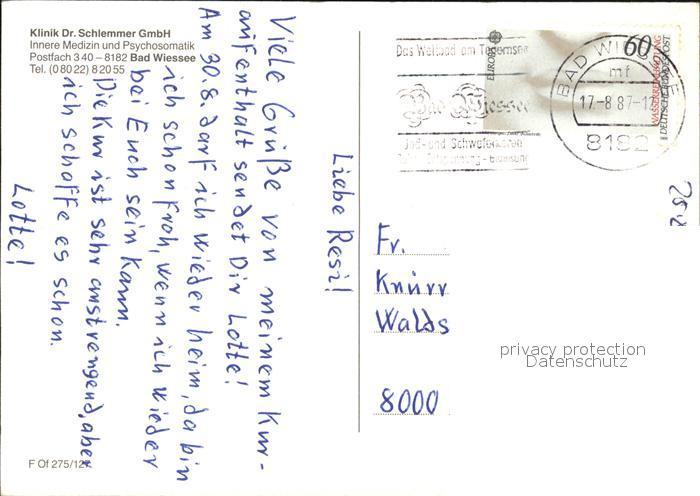 Klinik Dr. Schlemmer GmbH
Innere Medizin und Psychosomatik
Postfach 3 40 – 8182 Bad Wiessee
Tel. (0 80 22) 8 20 55
Liebe Resi!
Viele Grüße von meinem Kur-
aufenthalt sendet Dir Lotte!
Am 30.8. darf ich wieder heim, da bin
ich schon froh, wenn ich wieder
bei Euch sein kann.
Die Kur ist sehr anstrengend, aber
ich schaffe es schon.
Lotte!
F Of 275/12
Das Weltbad am Tegernsee
Bad Wiessee
Jod- und Schwefelbäder
EUROPA
60
WASSERREINHALTUNG
DEUTSCHE BUNDESPOST
BAD WIESSEE
mf
17.-8 87-1
8182
Fr.
Knürr
Walds
8000
privacy protection
Datenschutz